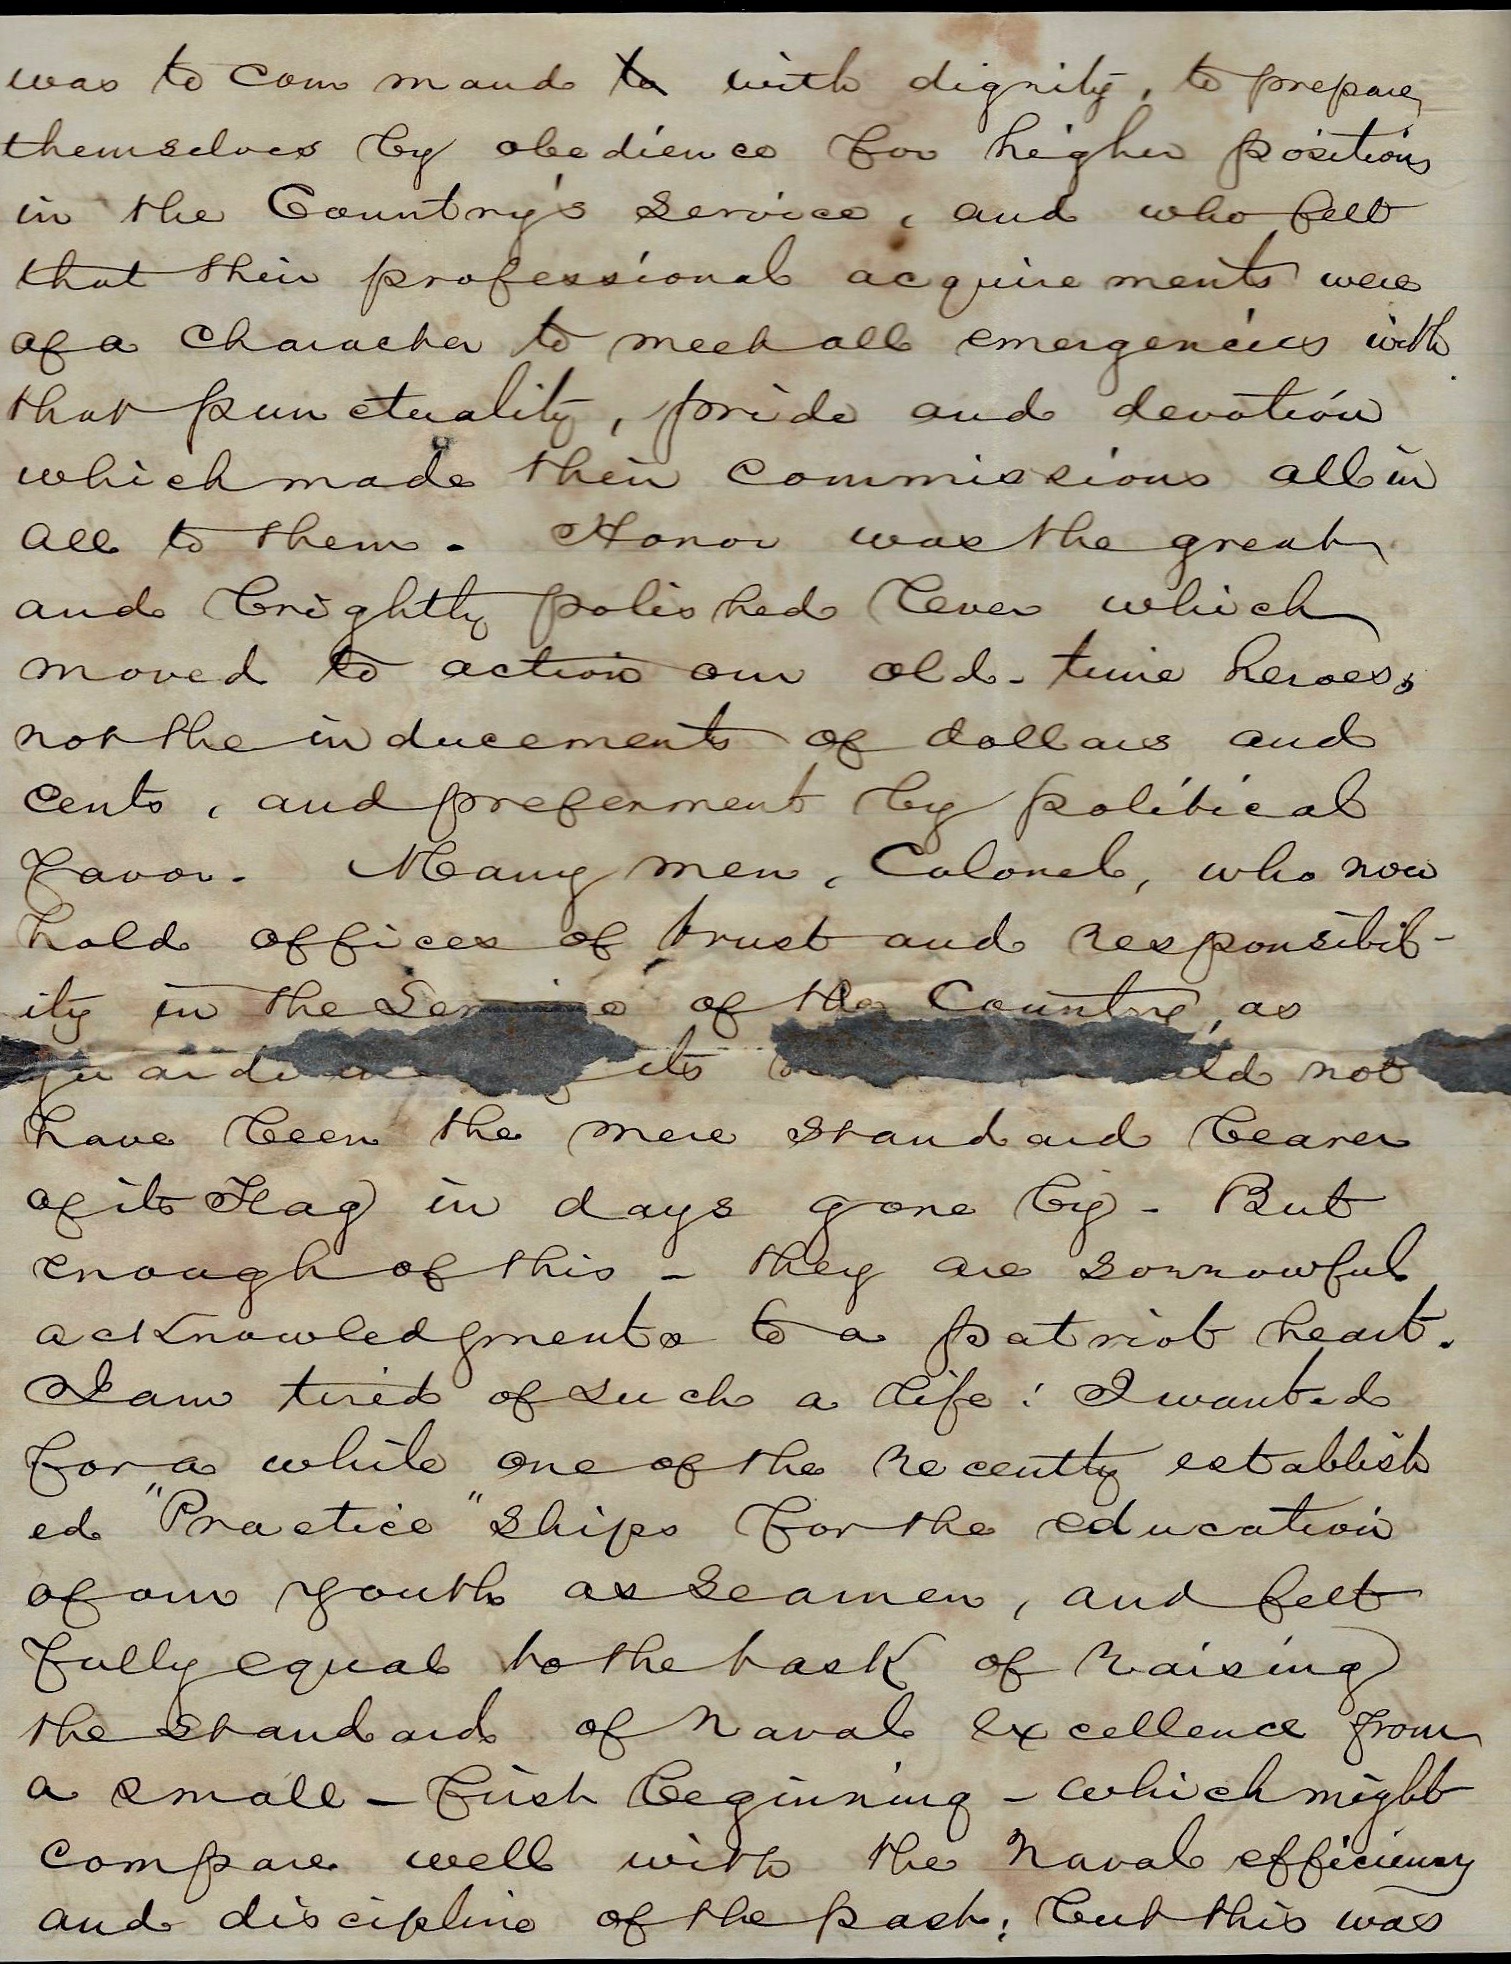 was to command to with dignity, to prepare
themselves by obedience for higher positions
in the Country's service, and who felt
that their professional acquirements were
of a character to meet all emergencies with
that punctuality, pride and devotion
which made their commissions all in
all to them. Honor was the great
and brightly polished lever which
moved to action our old-time heroes,
not the inducements of dollars and
cents, and preferment by political
favor. Many men, Colonel, who now
hold offices of trust and responsibil-
ity in the Service of the Country, as
its not
have been the mere standard bearer
of its Flag in days gone by - But
enough of this - they are sorrowful
acknowledgments to a patriot heart.
I am tired of such a life: I wanted
for a while one of the recently establish
ed "Practice" ships for the education
of our youth as seamen, and felt
fully equal to the task of raising
the standard of naval excellence from
a small - first beginning - which might
compare well with the naval efficiency
and discipline of the past; but this was